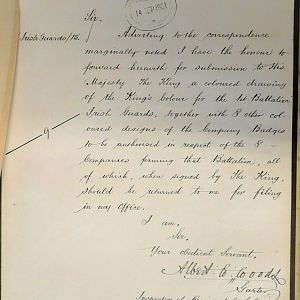 14 SEP 1901
Sir,
Irish Guards/74.
Adverting to the correspondence
marginally noted I have the honour to
forward herewith for submission to His
Majesty The King a coloured drawing
of the King's Colour for the 1st Battalion
Irish Guards, together with 8 other col-
oured designs of the Company Badges
to be authorised in respect of the 8 -
Companies forming that Battalion, all
of which, when signed by The King,
should be returned to me for filing
in my Office.
I am,
Sir,
Your obedient Servant,
Albert W. Woods
Garter